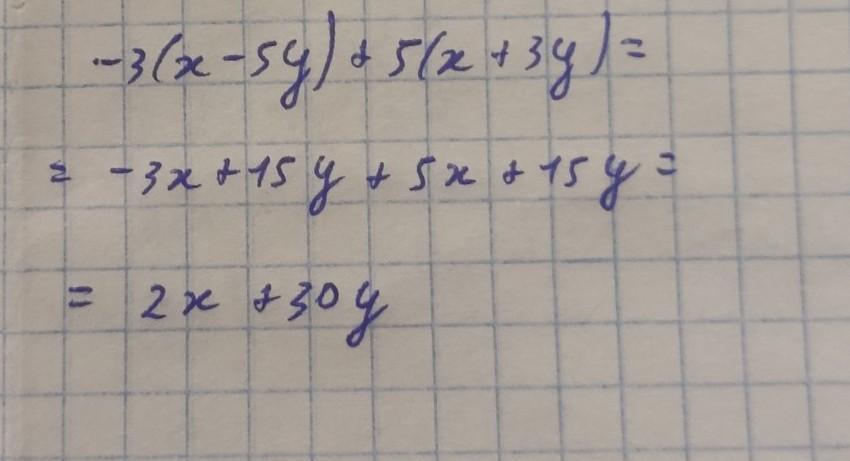 -3(x-5y)+5(x+3y)=
= -3x+15y+5x+15y=
= 2x+30y